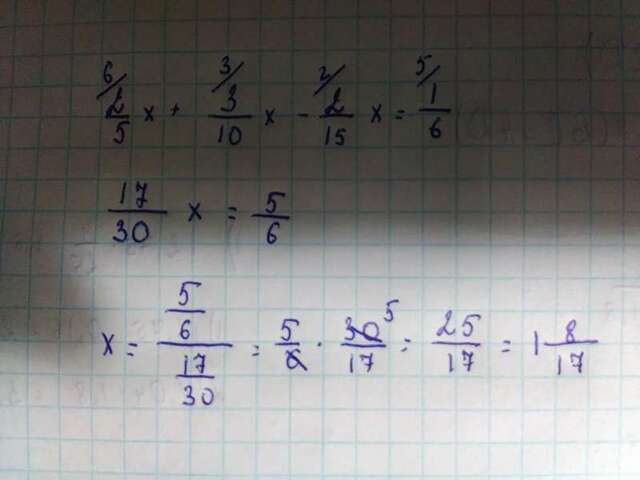 6/ 2/5 x + 3/ 3/10 x - 2/ 2/15 x = 5/ 1/6
17/30 x = 5/6
x = (5/6)/(17/30) = 5/6 · 30/17 5 = 25/17 = 1 8/17